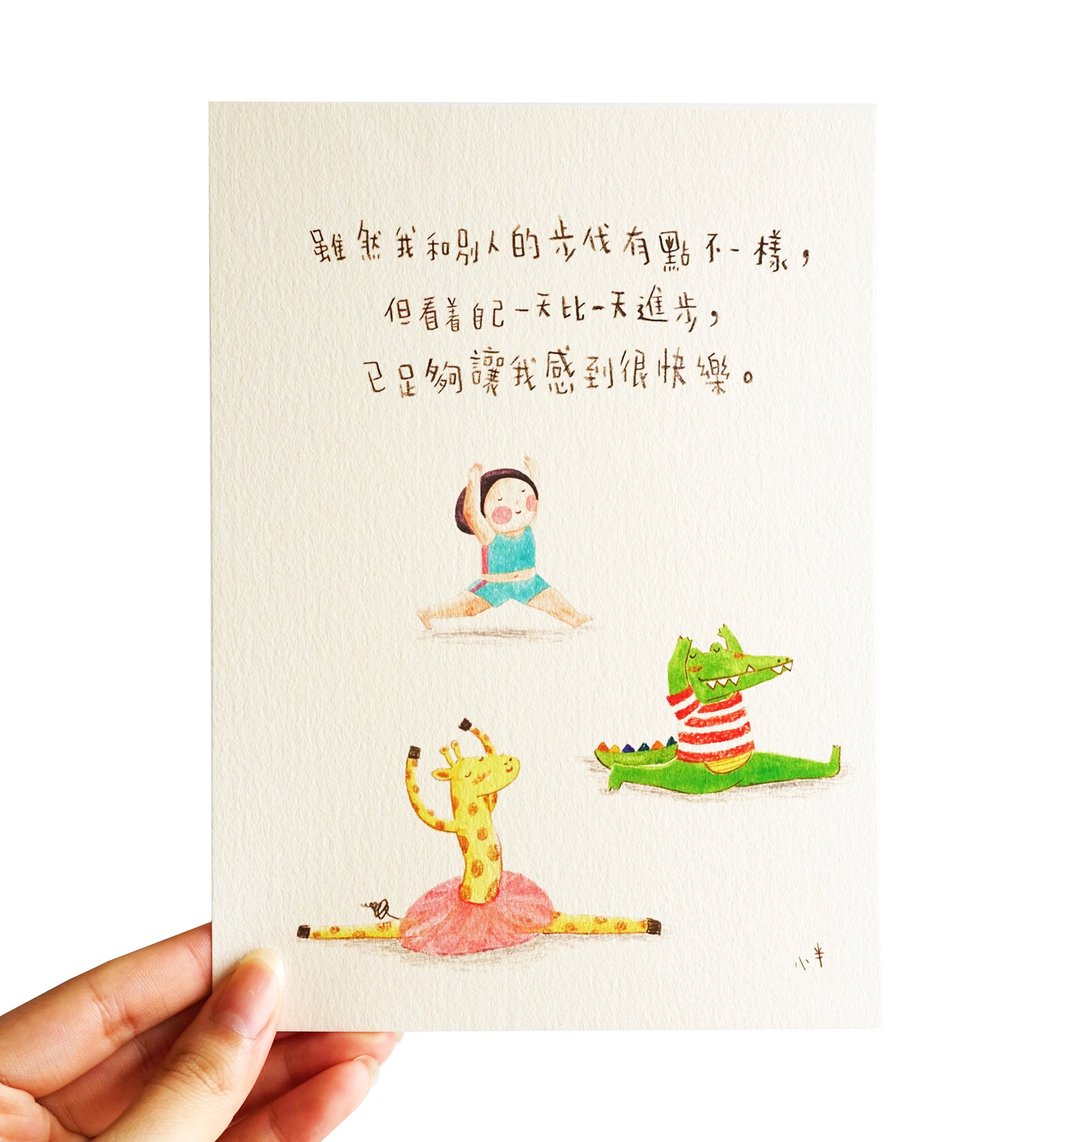 雖然我和別人的步伐有點不一樣，
但看着自己一天比一天進步，
已足夠讓我感到很快樂。
小半